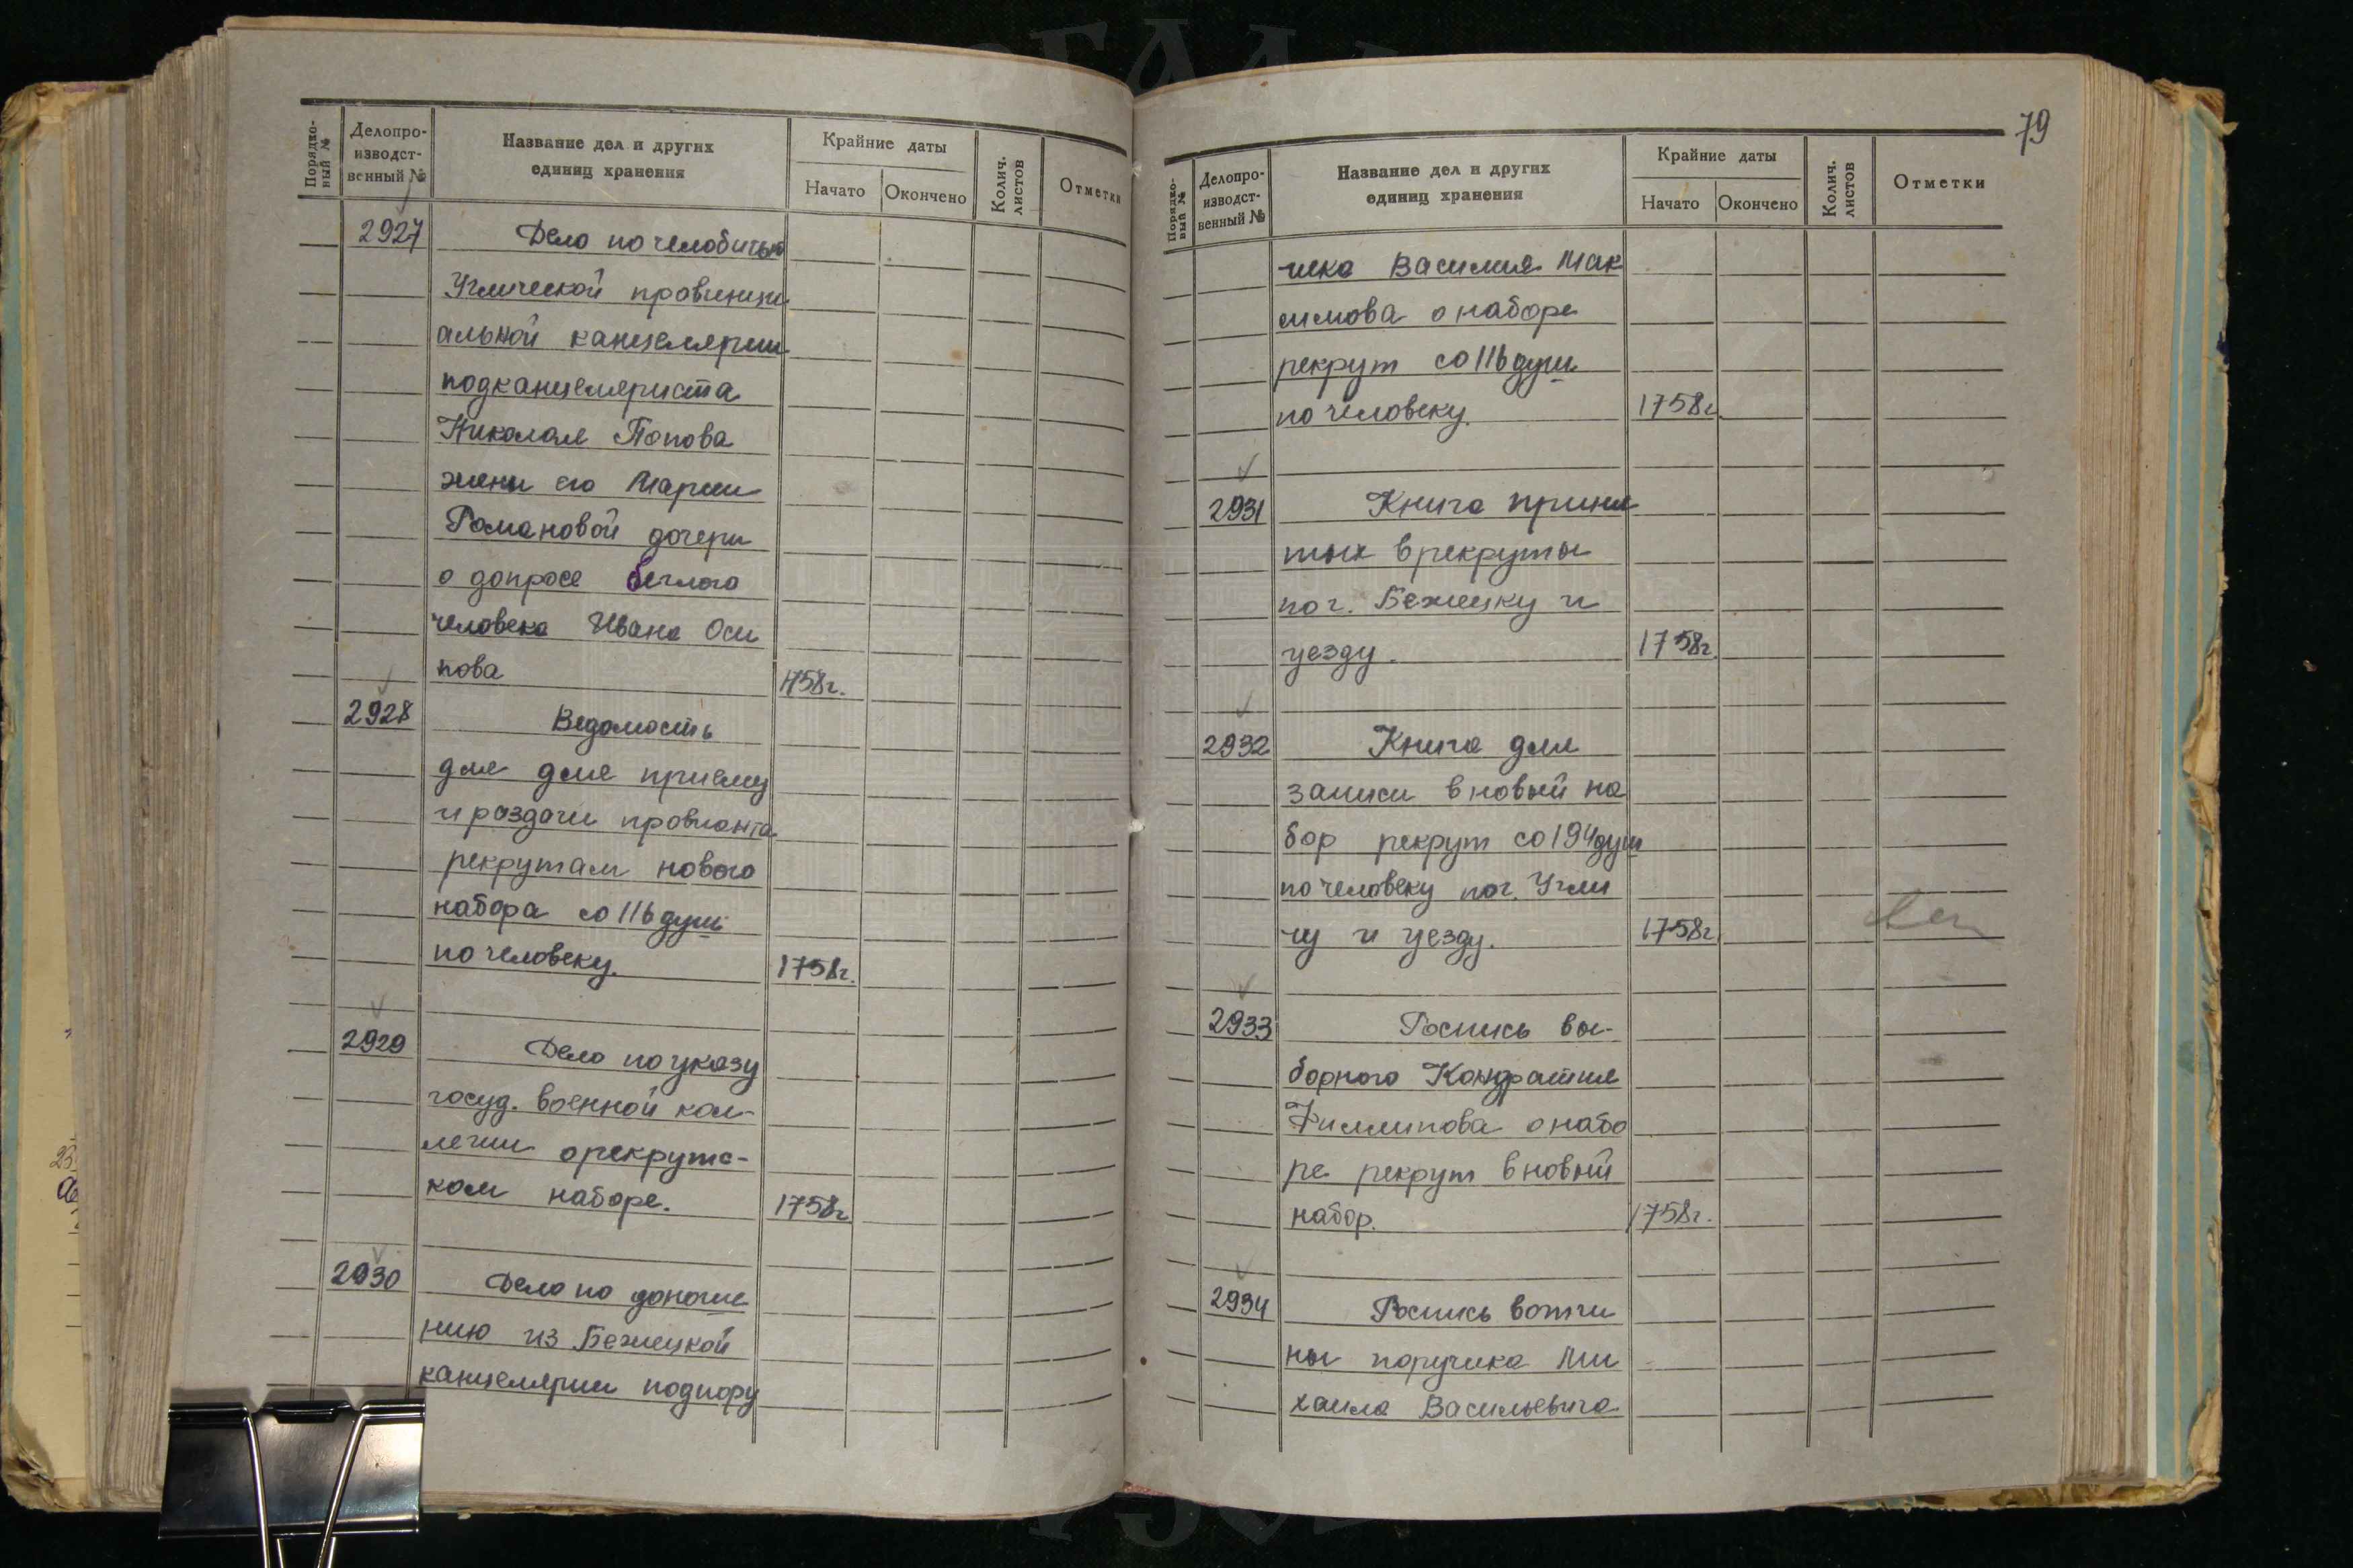 Порядко-
вый №
Делопро-
изводст-
венный №
Название дел и других
единиц хранения
Крайние даты
Начато
Окончено
Колич.
листов
Отметки
2927
Дело по челобитью
Угличской провинци
альной канцелярии
подканцеляриста
Николая Попова
жены его Марии
Романовой дочери
о допросе беглого
человека Ивана Оси
пова
1758г.
2928
Ведомость
для для приему
и раздачи провианта
рекрутам нового
набора со 116 душ
по человеку.
1758г.
2929
Дело по указу
госуд. военной кол-
легии о рекрутс-
ком наборе.
1758г
2930
Дело по доноше
нию из Бежецкой
канцелярии подпору
79
Порядко-
вый №
Делопро-
изводст-
венный №
Название дел и других
единиц хранения
Крайние даты
Начато
Окончено
Колич.
листов
Отметки
чика Василия Мак
симова о наборе
рекрут со 116 душ
по человеку.
1758г.
2931
Книга приня
тых в рекруты
по г. Бежецку и
уезду.
1758г.
2932
Книга для
записи в новый на
бор рекрут со 194 душ
по человеку по г. Угли
чу и уезду.
1758г.
2933
Роспись вы-
борного Кондратия
Филлипова о набо
ре рекрут в новый
набор.
1758г.
2934
Роспись вотчи
ны поручика Ми
хаила Васильевича